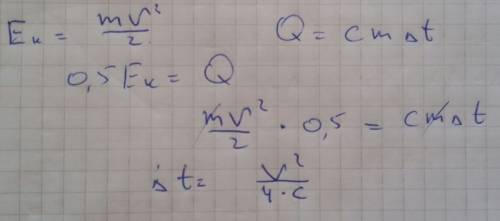 Eк = mv²/2 Q = cm△t
0,5Eк = Q
mv²/2 · 0,5 = cm△t
△t = v²/4·c